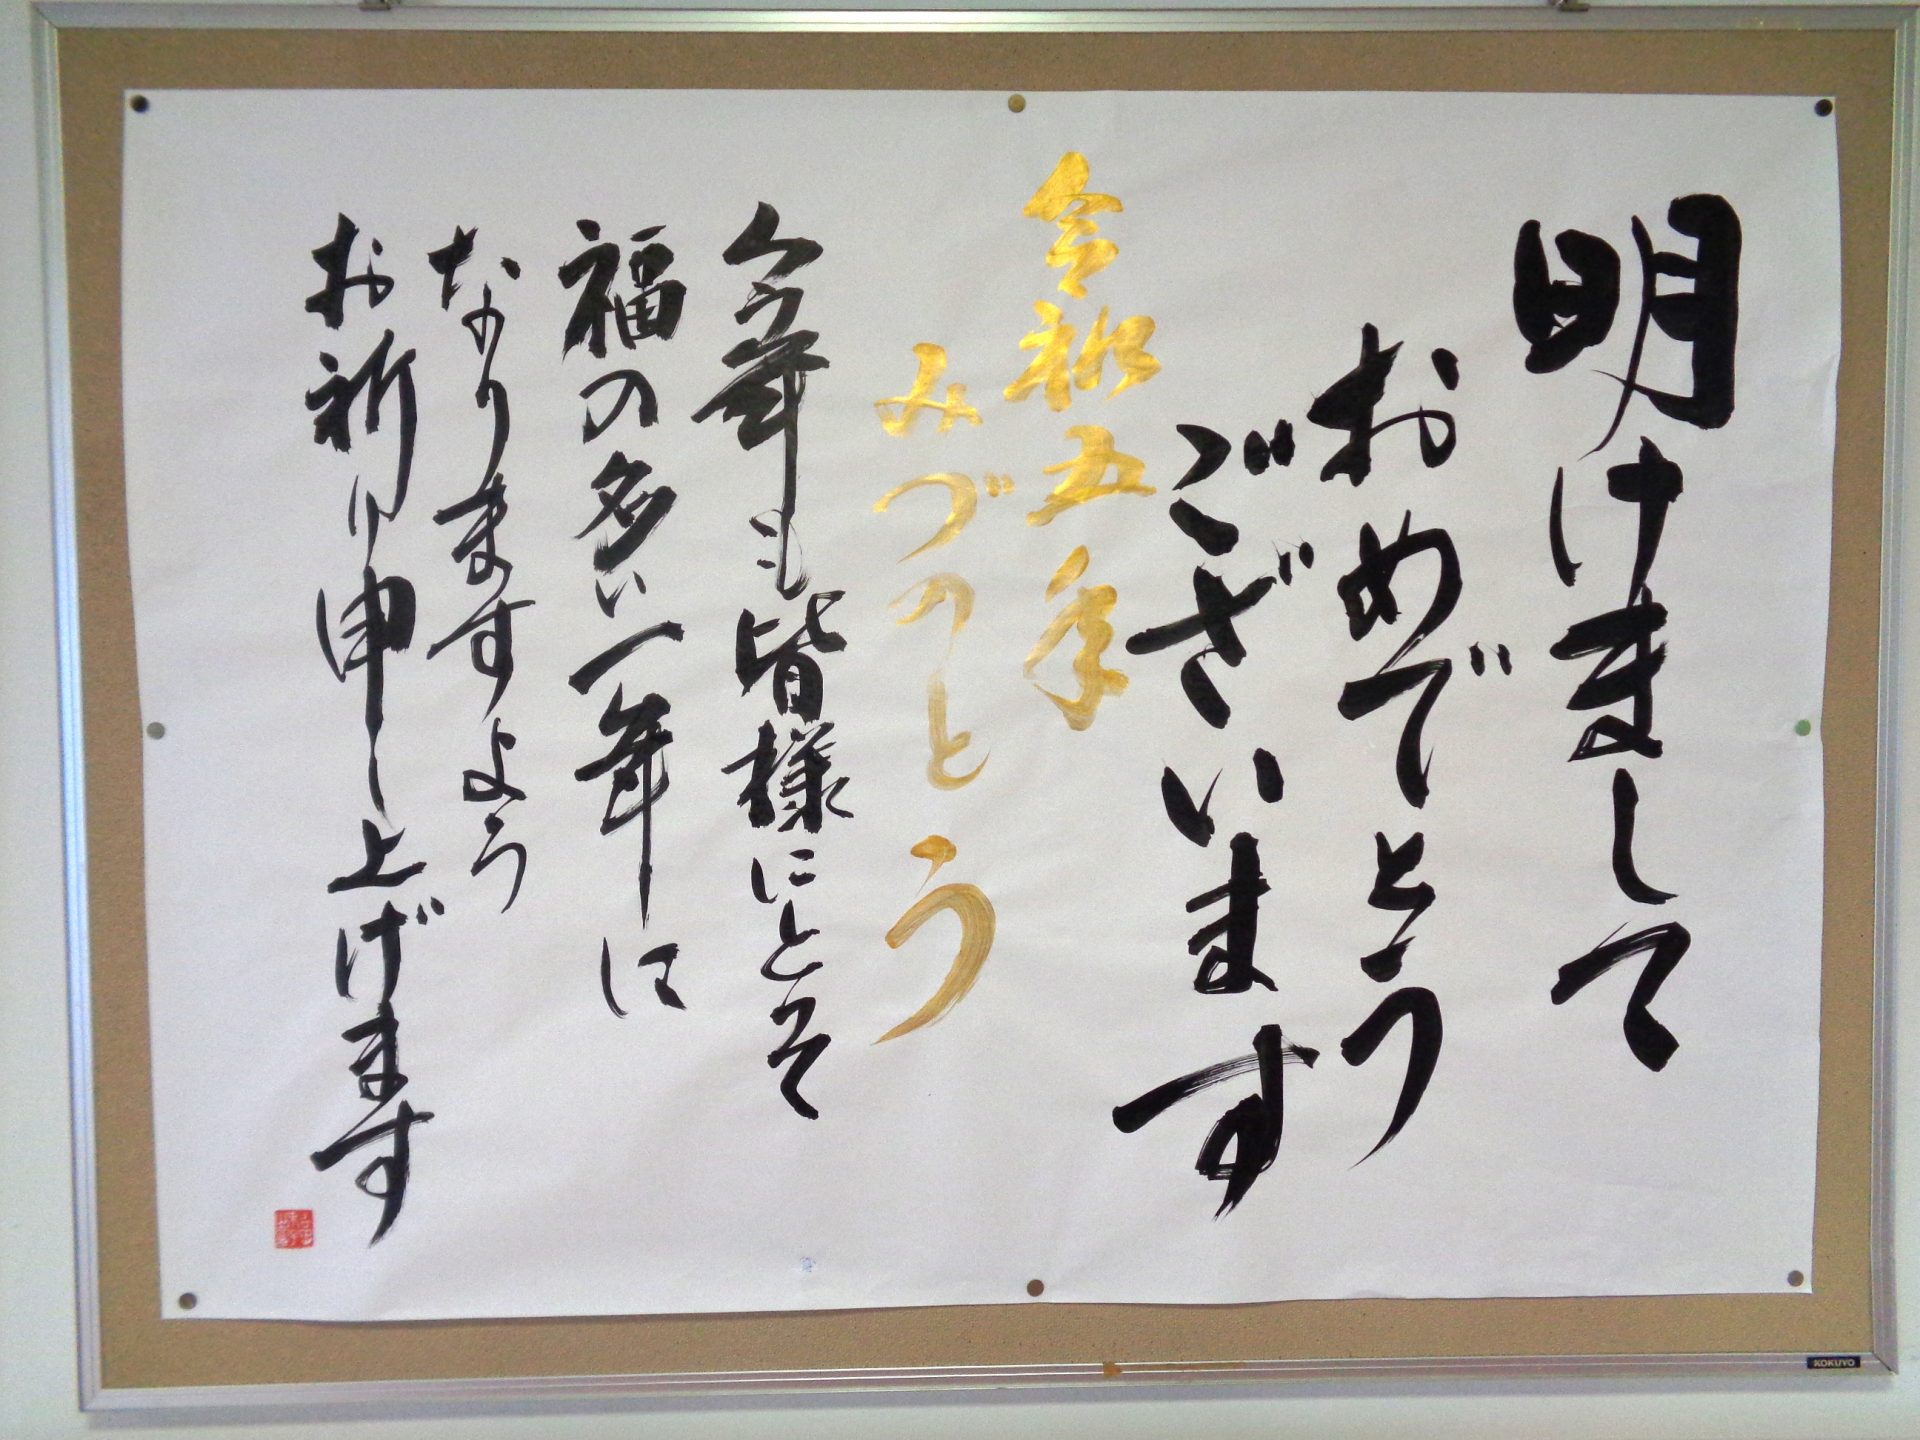 明けまして
おめでとう
ございます
令和五年
みづのとう
今年も皆様にとそ
福の多い一年に
なりますよう
お祈り申し上げます
KOKUYO